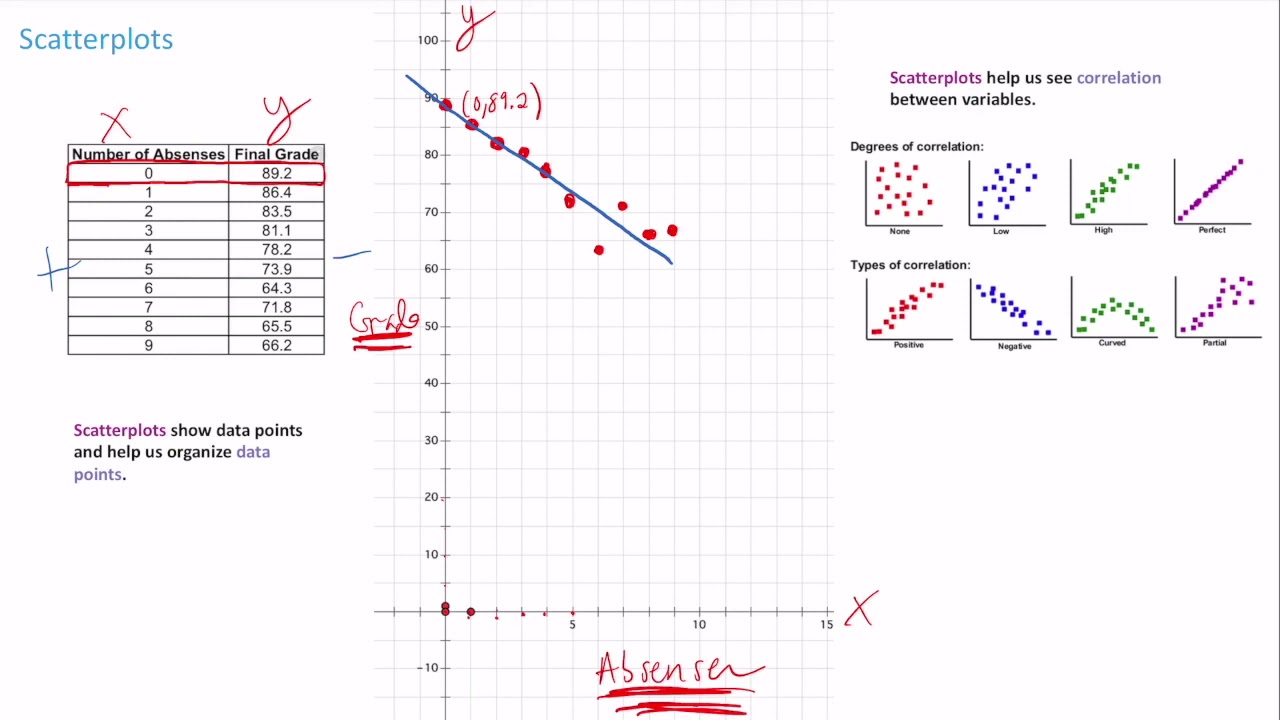 Scatterplots
x y
Number of Absenses Final Grade
0 89.2
1 86.4
2 83.5
3 81.1
4 78.2
5 73.9
6 64.3
7 71.8
8 65.5
9 66.2
+ –
Scatterplots show data points
and help us organize data
points.
y
100
90
(0,89.2)
80
70
60
Grade
50
40
30
20
10
5 10 15
x
-10
Absenses
Scatterplots help us see correlation
between variables.
Degrees of correlation:
None Low High Perfect
Types of correlation:
Positive Negative Curved Partial